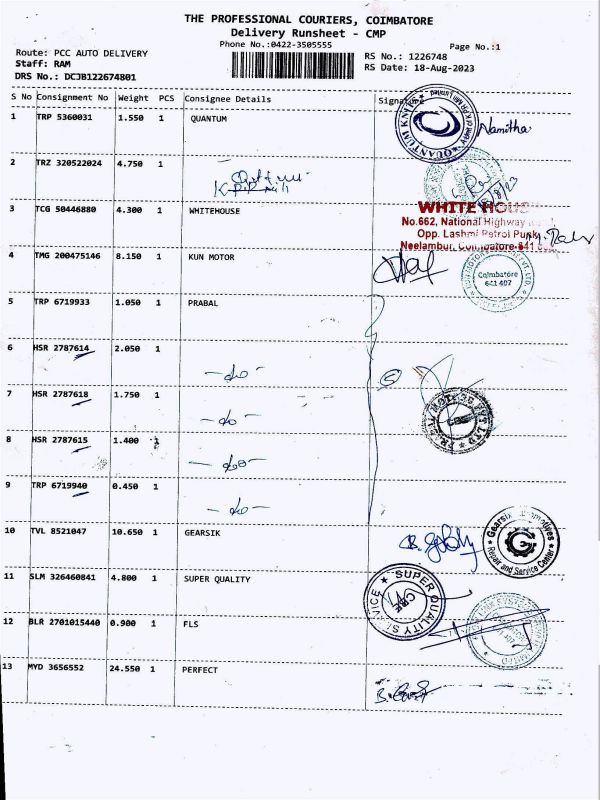 THE PROFESSIONAL COURIERS, COIMBATORE
Delivery Runsheet - CMP
Phone No.:0422-3505555
Page No.:1
Route: PCC AUTO DELIVERY
RS No.: 1226748
Staff: RAM
RS Date: 18-Aug-2023
DRS No.: DCJB122674801
S No Consignment No Weight PCS Consignee Details Signature
1 TRP 5360031 1.550 1 QUANTUM
QUANTUM KNITS
Namitha
2 TRZ 320522024 4.750 1
3 TCG 50446880 4.300 1 WHITEHOUSE
WHITE HOUS
No.662, National Highway
Opp. Lashmi Petrol Punk,
Neelambur, Coimbatore-641
4 TMG 200475146 8.150 1 KUN MOTOR
Coimbatore
641 407
5 TRP 6719933 1.050 1 PRABAL
6 HSR 2787614 2.050 1
-do-
5
7 HSR 2787618 1.750 1
-do-
CBE
8 HSR 2787615 1.400 1
-do-
9 TRP 6719940 0.450 1
-do-
10 TVL 8521047 10.650 1 GEARSIK
Gearsik
Repair and Service Center
11 SLM 326460841 4.800 1 SUPER QUALITY
SUPER QUALITY SERVICE
CBE
12 BLR 2701015440 0.900 1 FLS
13 MYD 3656552 24.550 1 PERFECT